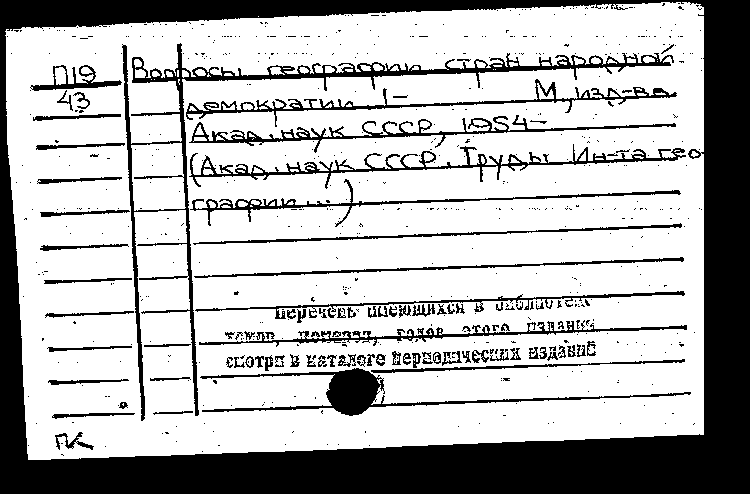 П19 Вопросы географии стран народной
43 демократии. 1- М., изд-во
Акад. наук СССР, 1954-
(Акад. наук СССР. Труды Ин-та гео-
графии...).
Перечень имеющихся в библиотеке
томов, номеров, годов этого издания
смотри в каталоге периодических изданий
ПК